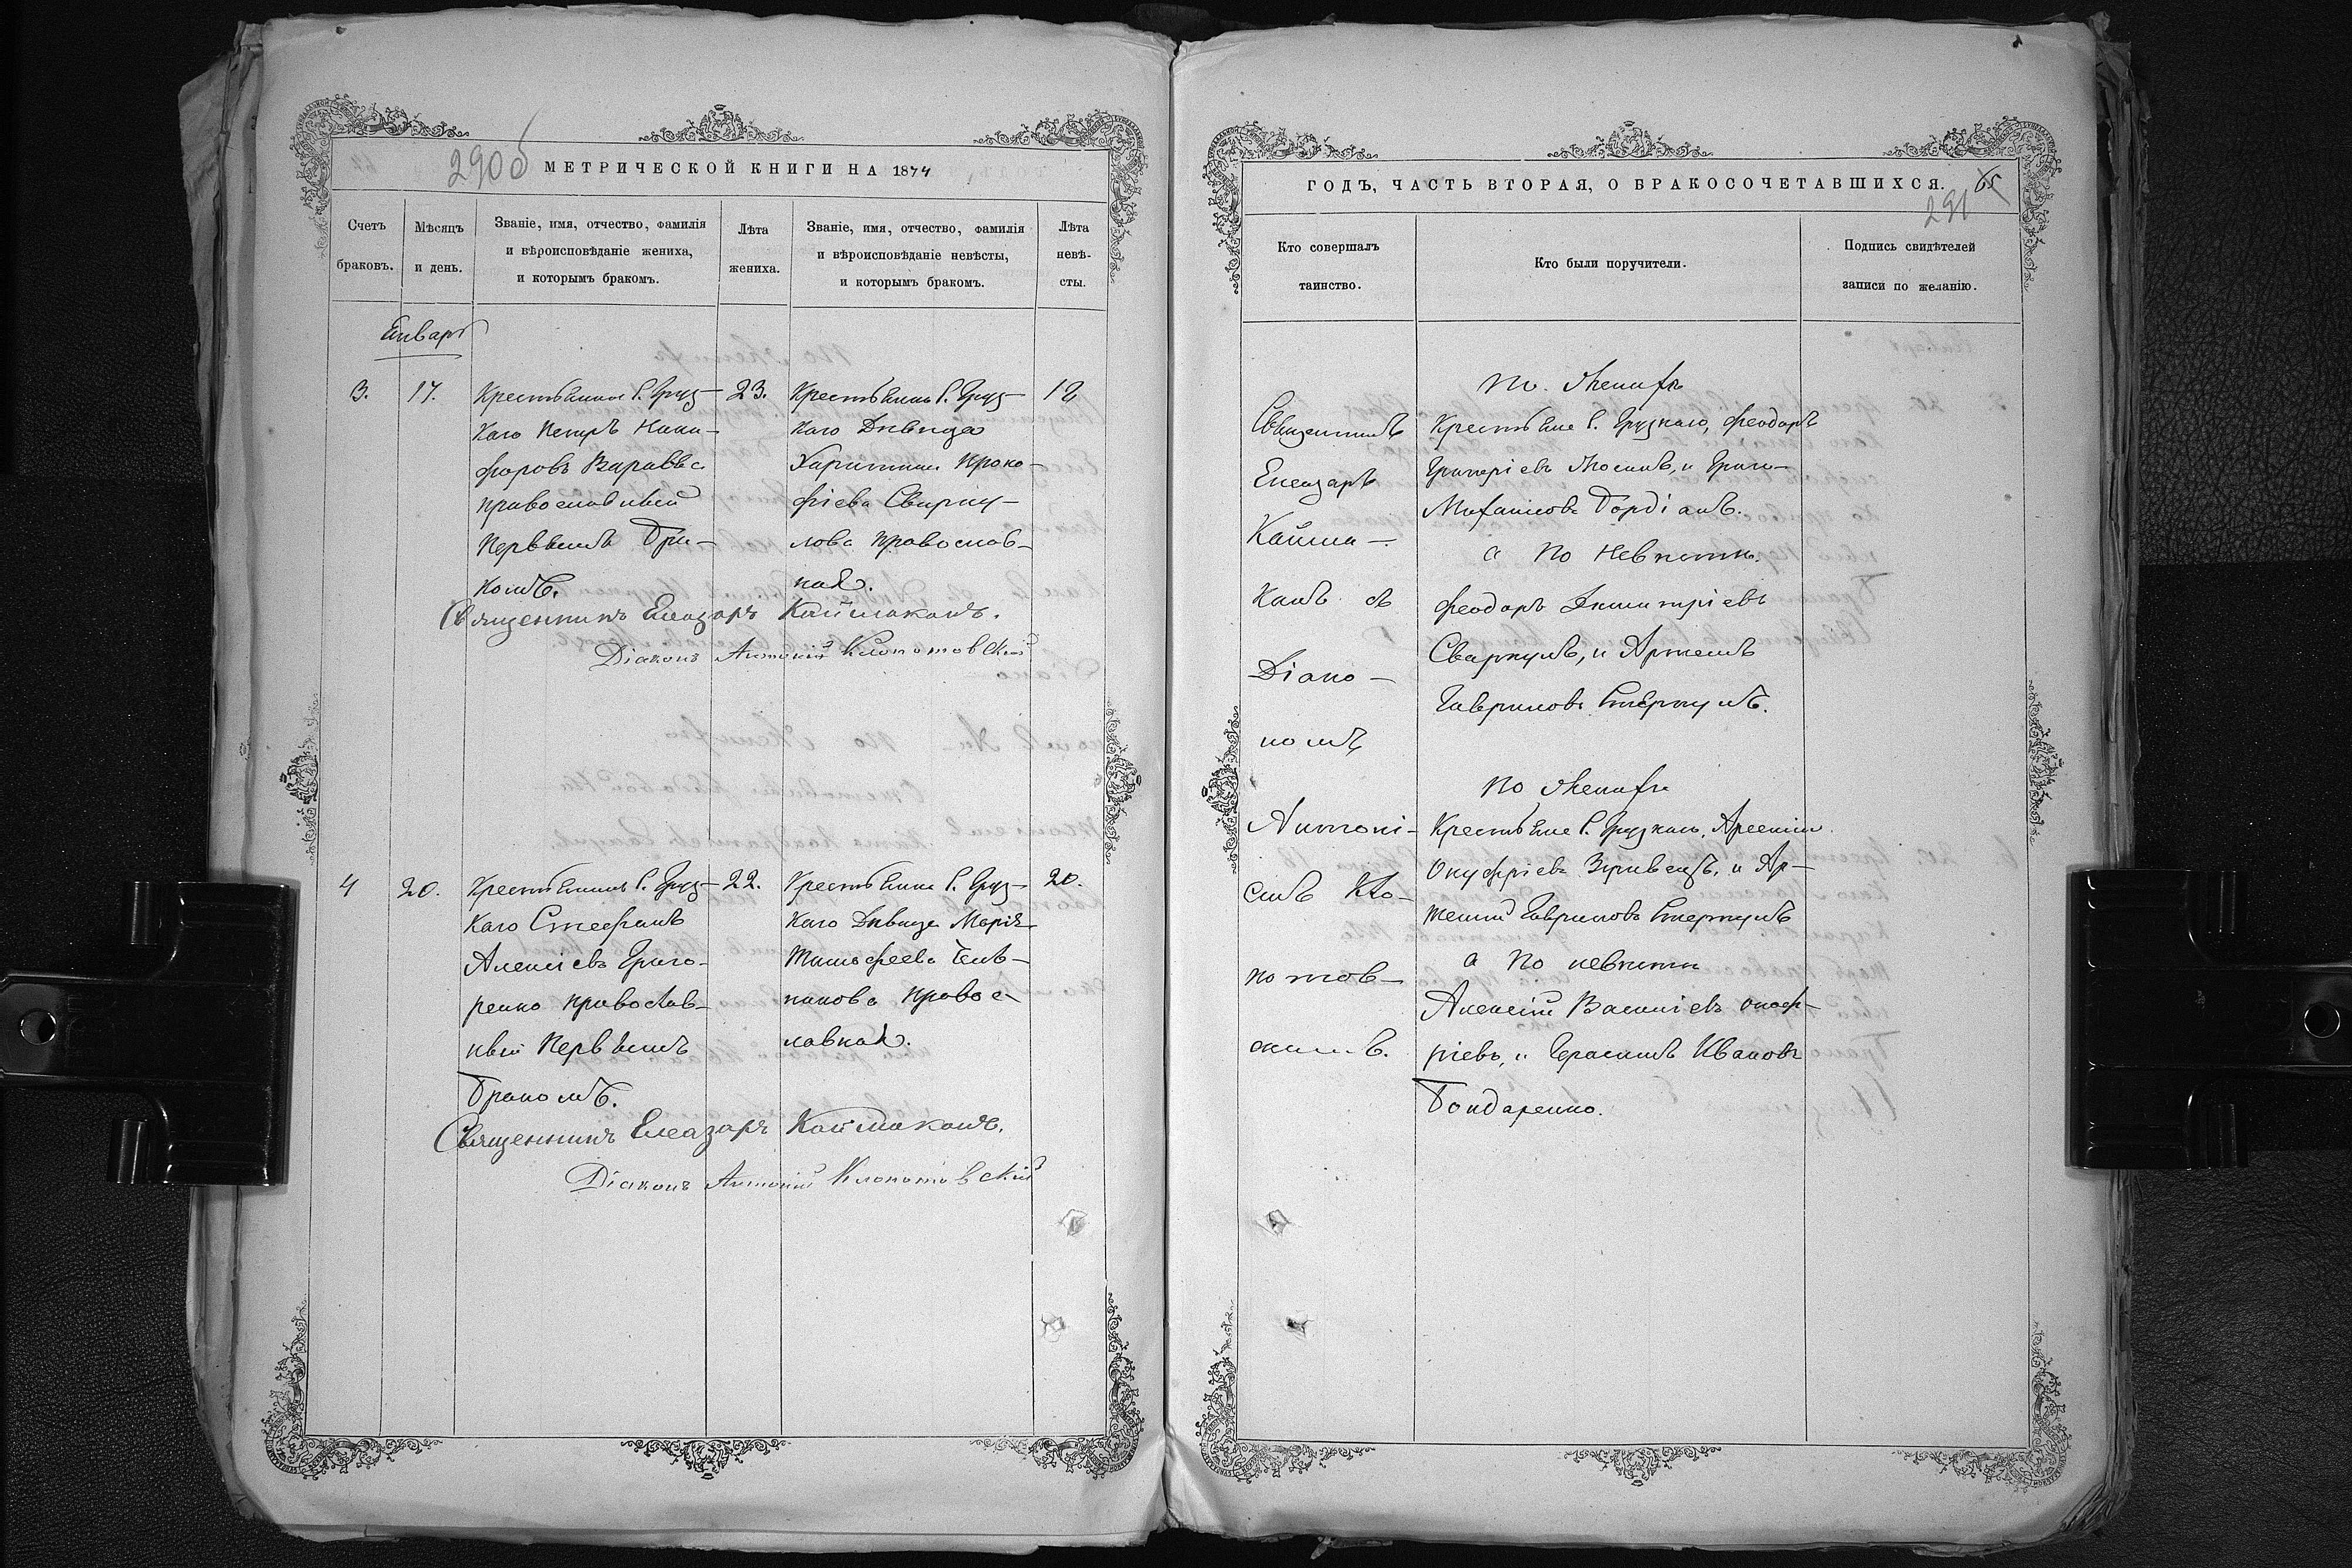 290б
МЕТРИЧЕСКОЙ КНИГИ НА 1874
Счетъ браковъ.
Мѣсяцъ и день.
Званіе, имя, отчество, фамилія
и вѣроисповѣданіе жениха,
и которымъ бракомъ.
Лѣта жениха.
Званіе, имя, отчество, фамилія
и вѣроисповѣданіе невѣсты,
и которымъ бракомъ.
Лѣта невѣ-
сты.
Январь
3.
17.
Крестьянинъ С. Груз-
каго Петръ Ники-
форовъ Варавва
православный
первымъ бра-
комъ.
23.
Крестьянка С. Груз-
каго Дѣвица
Харитина Проко-
фіева Свергу-
нова православ-
ная.
18
Священникъ Елеазаръ Каймаканъ.
Діаконъ Антоній Клопотовскій
4
20.
Крестьянинъ С. Груз-
каго Стефанъ
Алексіевъ Григо-
ренко православ-
ный первымъ
бракомъ.
22.
Крестьянка С. Груз-
каго Дѣвица Марія
Тимофеева
православная.
20.
Священникъ Елеазаръ Каймаканъ.
Діаконъ Антоній Клопотовскій
ГОДЪ, ЧАСТЬ ВТОРАЯ, О БРАКОСОЧЕТАВШИХСЯ.
65
291
Кто совершалъ
таинство.
Кто были поручители.
Подпись свидѣтелей
записи по желанію.
Священникъ
Елеазаръ
Кайма-
канъ съ
Діако-
номъ
Антоні-
емъ Кло-
потов-
скимъ.
По женихѣ
Крестьяне С. Грузкаго, Феодоръ
Григоріевъ и
Михаиловъ
а по невѣстѣ
Феодоръ Димитріевъ
и Артемъ
Гавриловъ
По женихѣ
Крестьяне С. Грузкаго, Арсеній
Онуфріевъ и Ар-
темій Гавриловъ
а по невѣстѣ
Алексій Василіевъ Оноф-
ріевъ, и Герасимъ Ивановъ
Бондаренко.